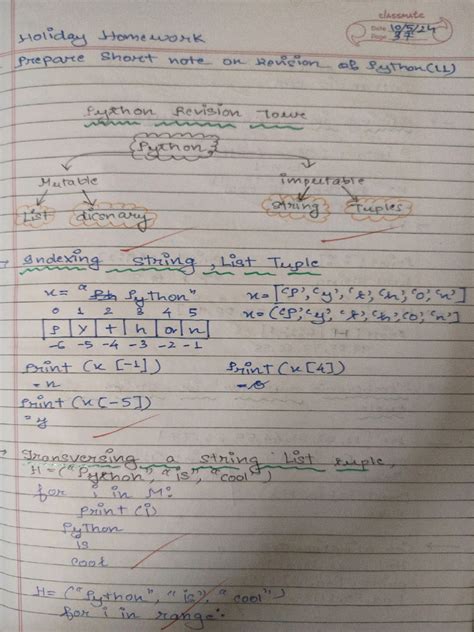 classmate
Date 10/5/24
Page 37
Holiday Homework
Prepare Short note on Revision of Python(11)
Python Revision Towe
Python
Mutable immutable
List dicsnary string Tuples
Indexing string, List Tuple
x= "Python" x=['P','y','t','h','o','n']
0 1 2 3 4 5 x=('P','y','t','h','o','n')
P y t h o n
-6 -5 -4 -3 -2 -1
Print (x [-1]) Print (x[4])
= n = o
Print (x[-5])
= y
Transversing a string List tuple,
H=("Python", "is", "cool")
for i in M:
Print (i)
Python
is
cool
H= ("Python", "is", "cool")
for i in range: